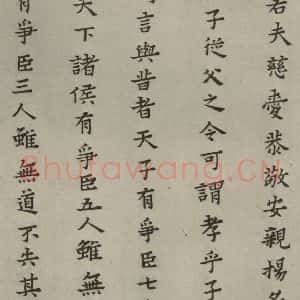 若夫慈愛恭敬安親揚名
子從父之令可謂孝乎子
言與昔者天子有爭臣七
天下諸侯有爭臣五人雖無
有爭臣三人雖無道不失其
Shufawang.CN